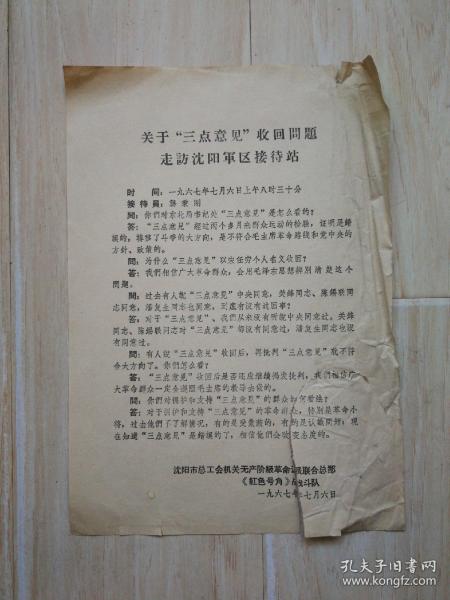 关于“三点意见”收回問題
走訪沈阳軍区接待站
时　间：一九六七年七月六日上午八时三十分
接待員：
問：你們对东北局书記处“三点意見”是怎么看的？
答：“三点意見”經过两个多月来群众运动的检驗，证明是錯
誤的，轉移了斗爭的大方向，是不符合毛主席革命路綫和党中央的
方針、政策的。
問：为什么“三点意見”以宋任穷个人名义收回？
答：我們相信广大革命群众，会用毛泽东思想辨别清楚这个
問題。
問：过去有人說“三点意見”中央同意，
同志同意，潘复生同志也同意，到底有没有这回事？
答：对于“三点意見”、我們从来没有听說中央同意过。
同志、陈錫联同志对“三点意見”都没有同意过，潘复生同志也没
有同意过。
問：有人說“三点意見”收回后，再批判“三点意見”就不符
合大方向了。你們怎么看？
答：“三点意見”收回后是否还应继續揭发批判，我們相信广
大革命群众一定会遵照毛主席的教导去做的。
問：你們对拥护和支持“三点意見”的群众如何看法？
答：对于拥护和支持“三点意見”的革命群众，特别是革命小
将，过去他們不了解情况，有的是受蒙蔽的，有的是认識問題；現
在知道“三点意見”是錯誤的了，相信他們会改变态度的。
沈阳市总工会机关无产阶級革命派联合总部
《紅色号角》战斗队
一九六七年七月六日
孔夫子旧书网
www.kongfz.com